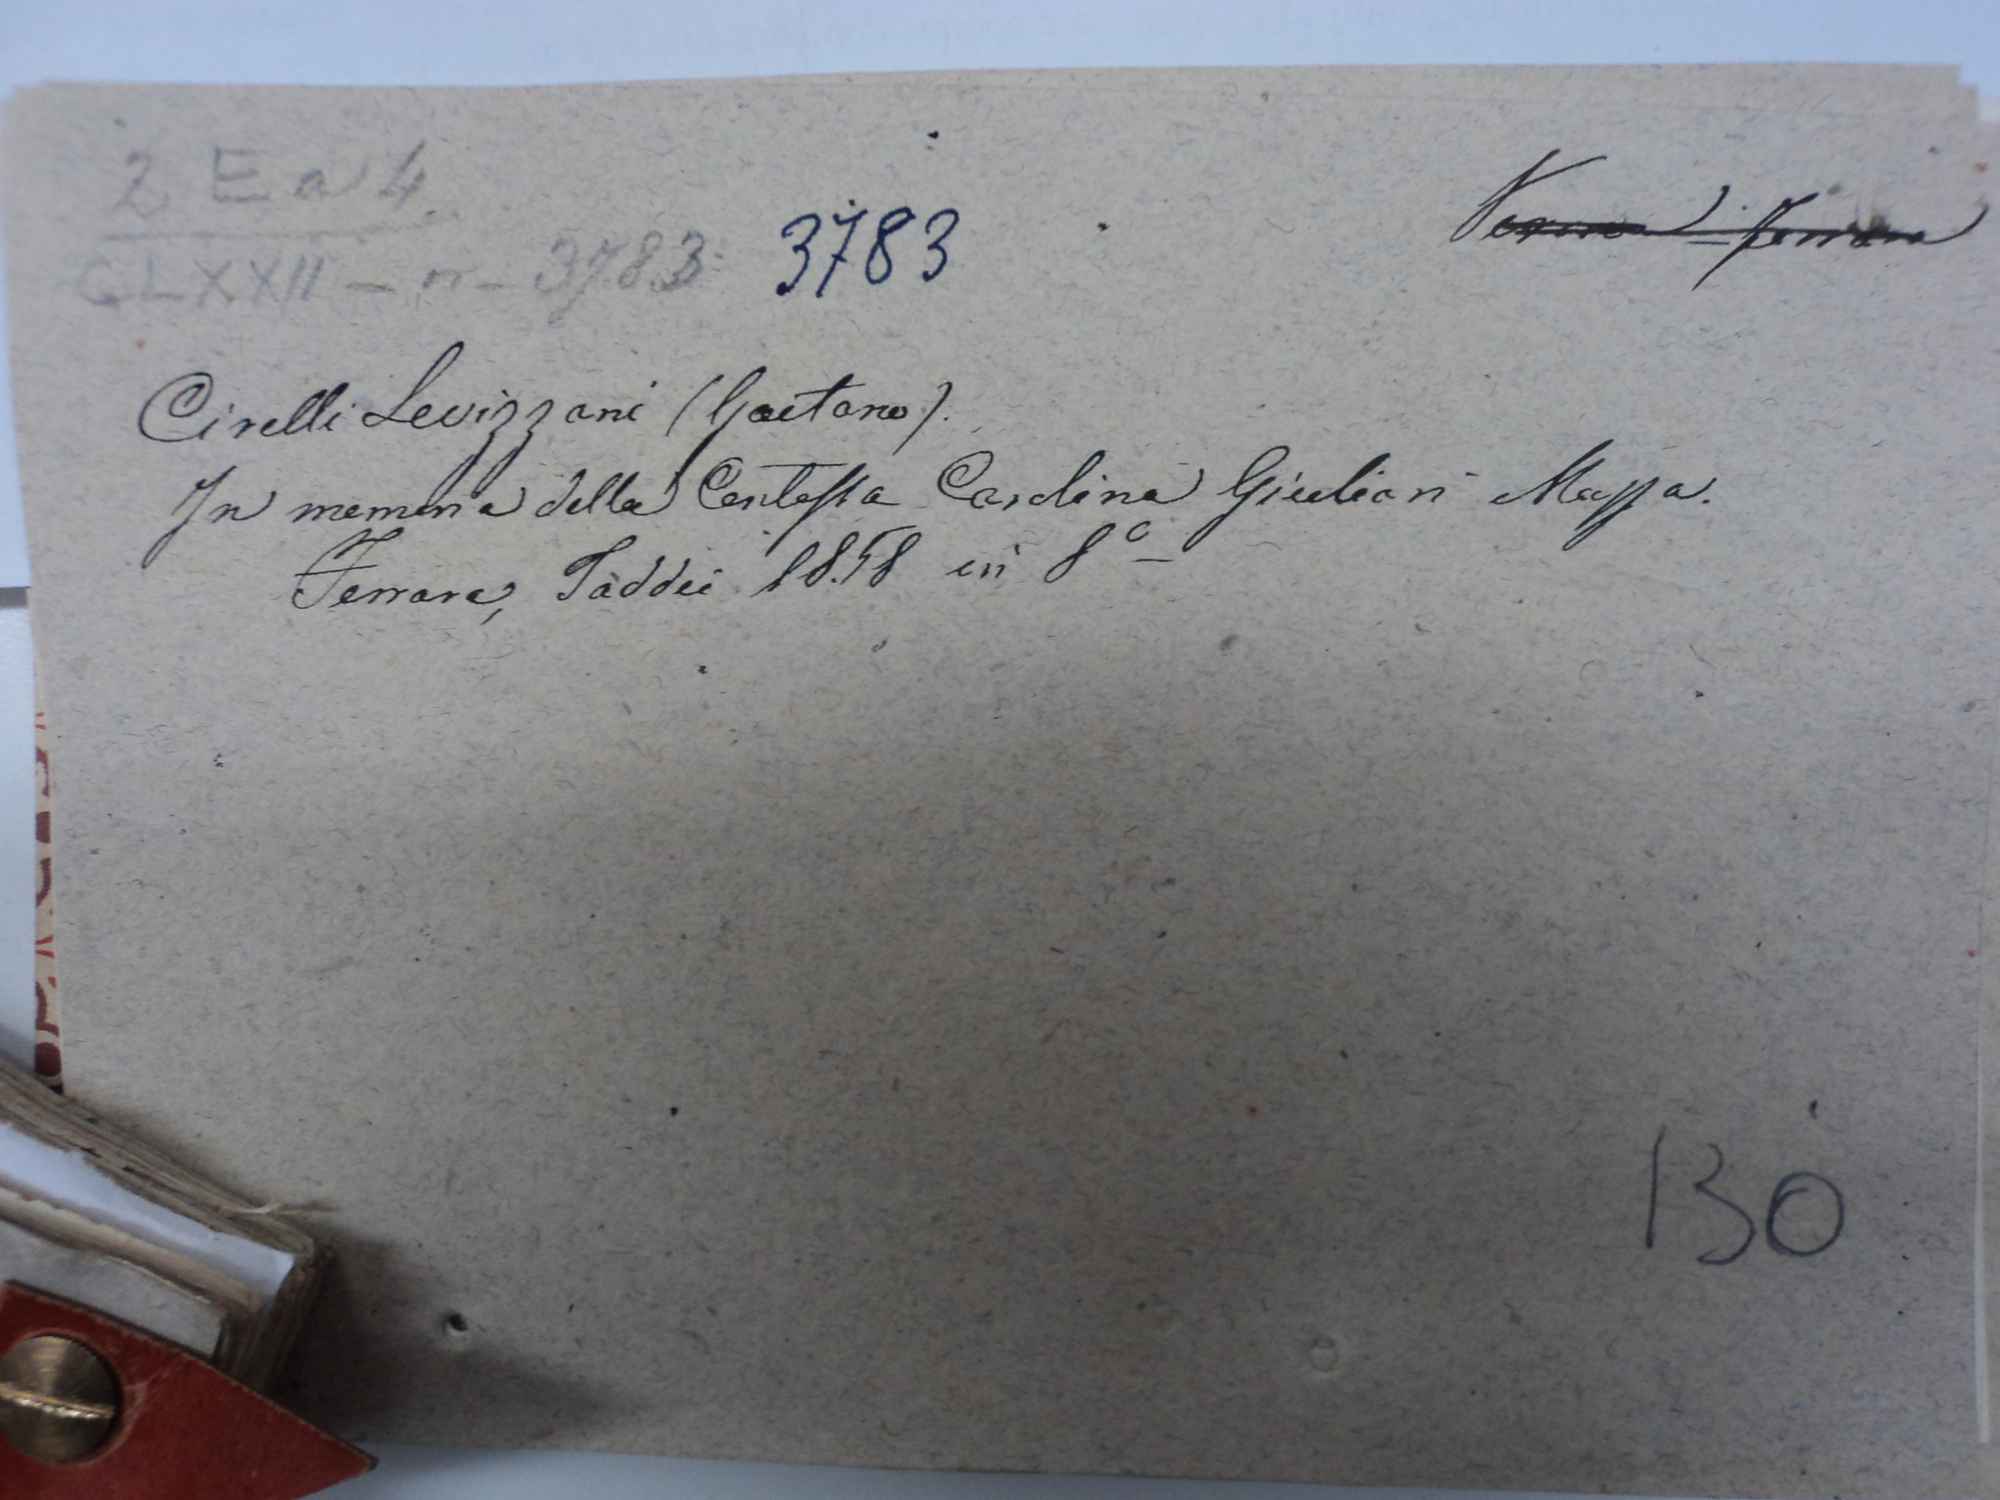 2 E a 4
CLXXII - n - 3783 3783
Ferrara
Cirelli Levizzani (Gaetano).
In memoria della Contessa Carolina Giuliani Massa.
Ferrara, Taddei 1858 in 8º
130